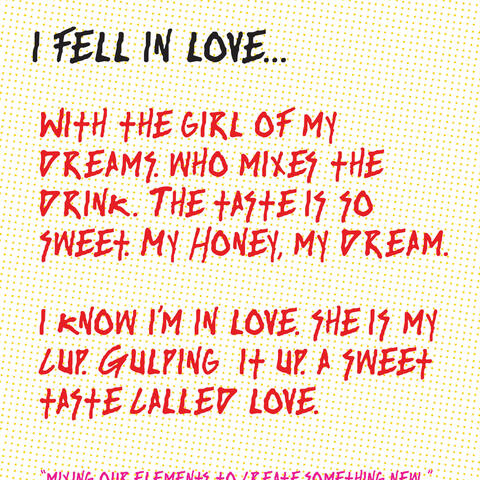 I FELL IN LOVE...
WITH THE GIRL OF MY
DREAMS. WHO MIXES THE
DRINK. THE TASTE IS SO
SWEET. MY HONEY, MY DREAM.
I KNOW I'M IN LOVE. SHE IS MY
CUP. GULPING IT UP. A SWEET
TASTE CALLED LOVE.
"MIXING OUR ELEMENTS TO CREATE SOMETHING NEW."